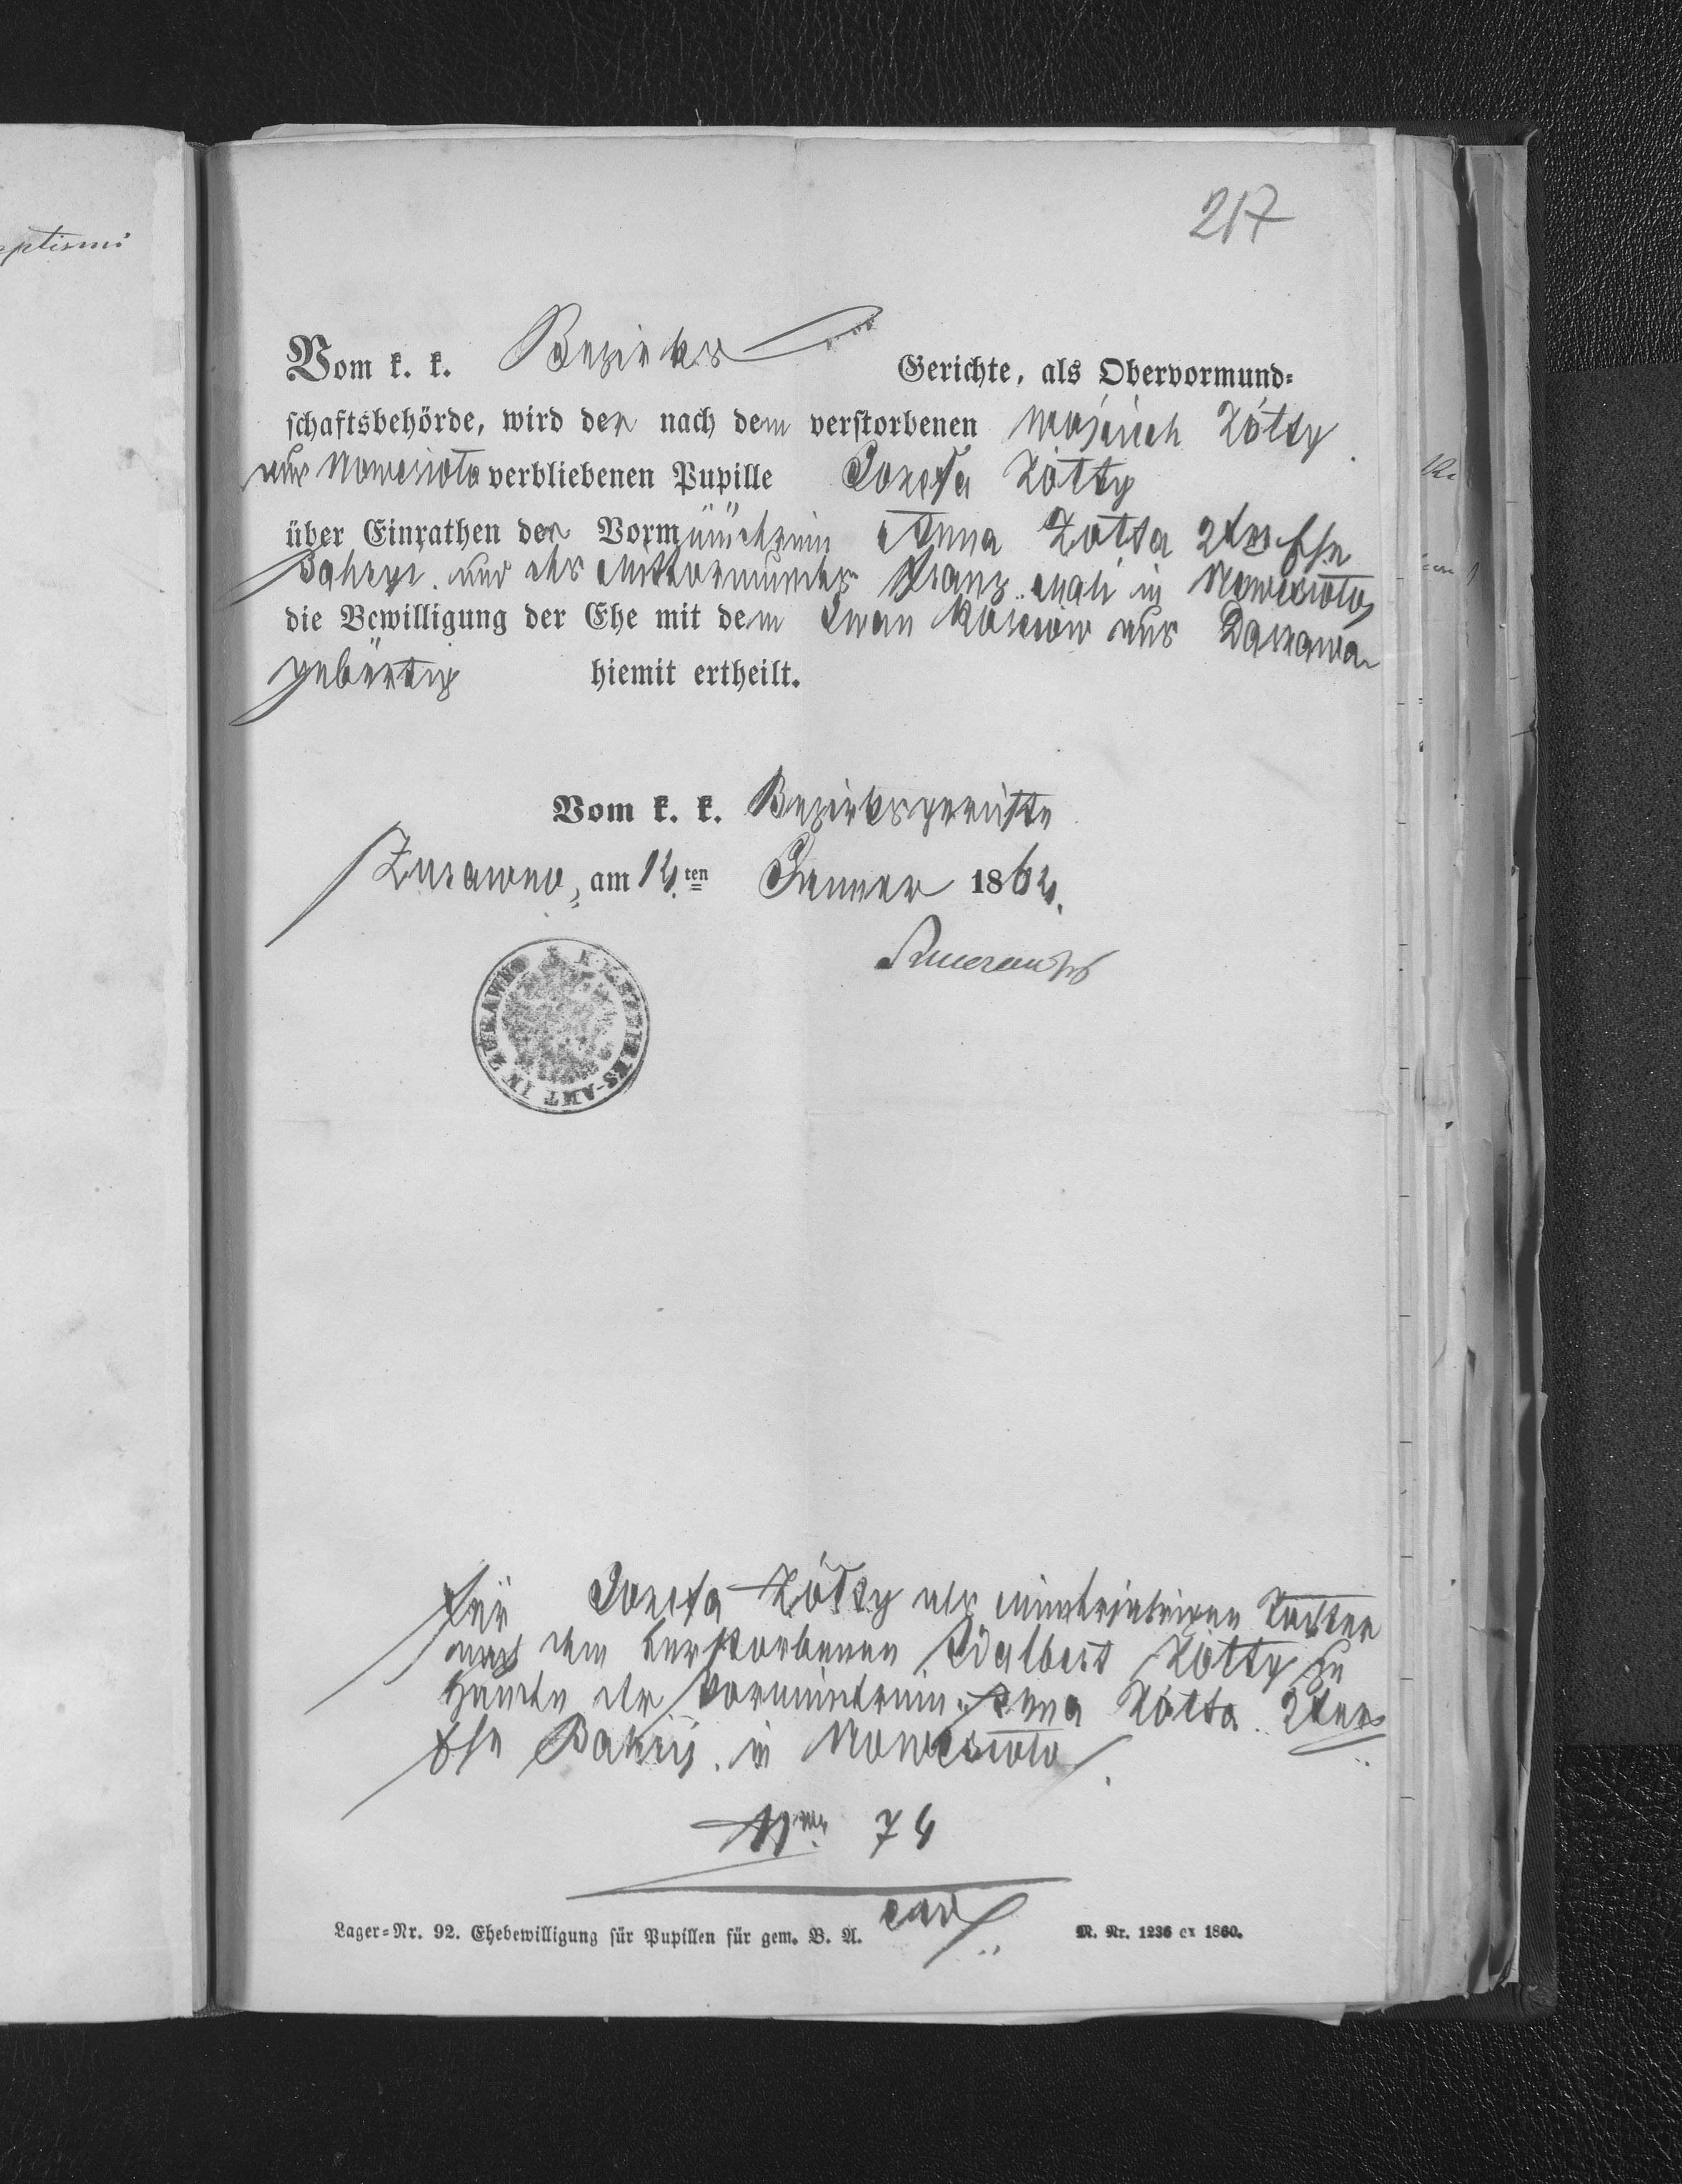 217
Vom k. k. Bezirks Gerichte, als Obervormund-
schaftsbehörde, wird der nach dem verstorbenen Wojciech Żółty
aus Nowesioło verbliebenen Pupille Jozefa Żółty
über Einrathen der Vormünderin Anna Żółta 2ter Ehe
und des Mitvormundes Franz in Nowesioło
die Bewilligung der Ehe mit dem Iwan aus Daszawa
gebürtig hiemit ertheilt.
Vom k. k. Bezirksgerichte
Żurawno, am 14.ten Jänner 1864.
K. K. BEZIRKS-AMT IN ZURAWNO
Für Jozefa Żółty als minderjährigen Tochter
nach dem verstorbenen Adalbert Żółty zu
Handen der Vormünderin Anna Żółta 2ter
Ehe in Nowesioło
74
Lager-Nr. 92. Ehebewilligung für Pupillen für gem. B. A.
M. Nr. 1236 ex 1860.